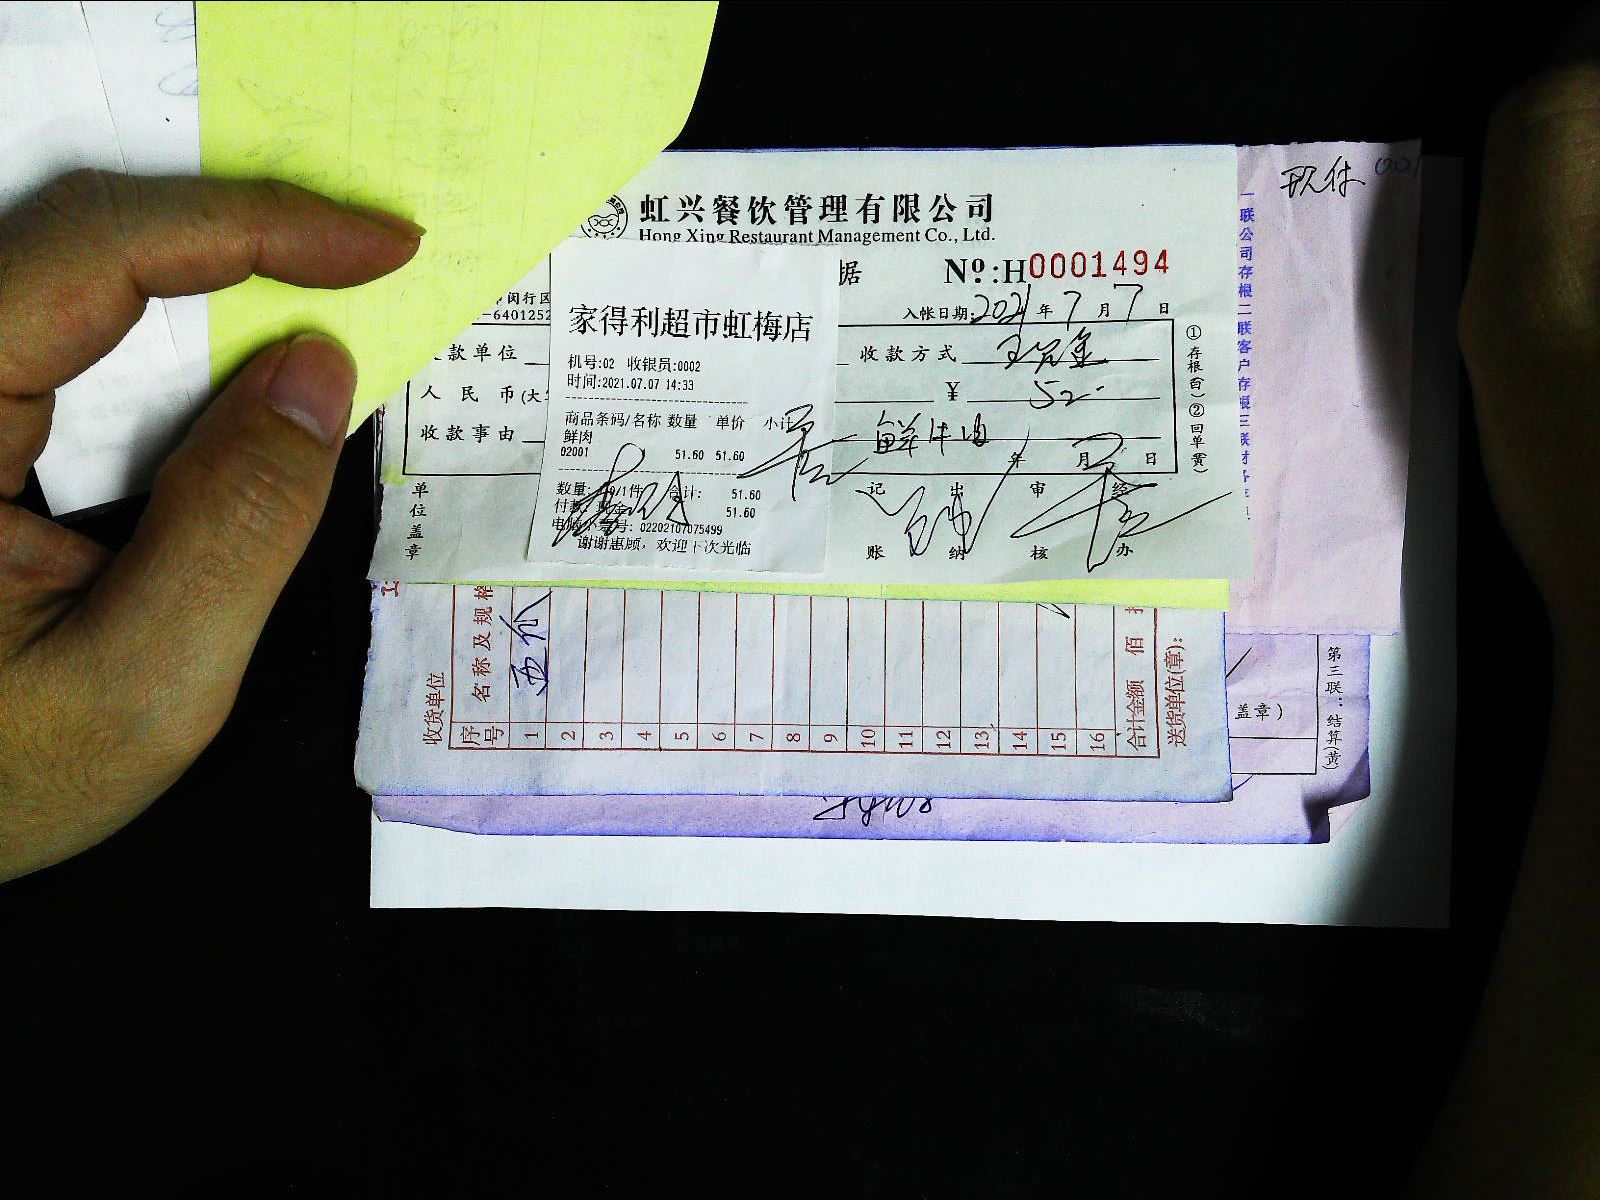 虹兴餐饮管理有限公司
Hong Xing Restaurant Management Co., Ltd.
据 Nº:H0001494
闵行区
-6401252
入帐日期:2021年7月7日
款单位 收款方式 现金
人民币(大 ¥ 52-
收款事由 鲜牛肉
年 月 日
单位盖章 记账 出纳 审核 经办
①存根(白)②回单(黄)
家得利超市虹梅店
机号:02 收银员:0002
时间:2021.07.07 14:33
商品条码/名称 数量 单价 小计
鲜肉
02001 51.60 51.60
数量: /1件 合计: 51.60
付款: 现金 51.60
电脑小票号: 02202107075499
谢谢惠顾，欢迎下次光临
现付 001
一联公司存根二联客户存根三联财务
收货单位
序号 名称及规格
1
2
3
4
5
6
7
8
9
10
11
12
13
14
15
16
合计金额 佰
送货单位(章):
盖章)
第三联：结算(黄)